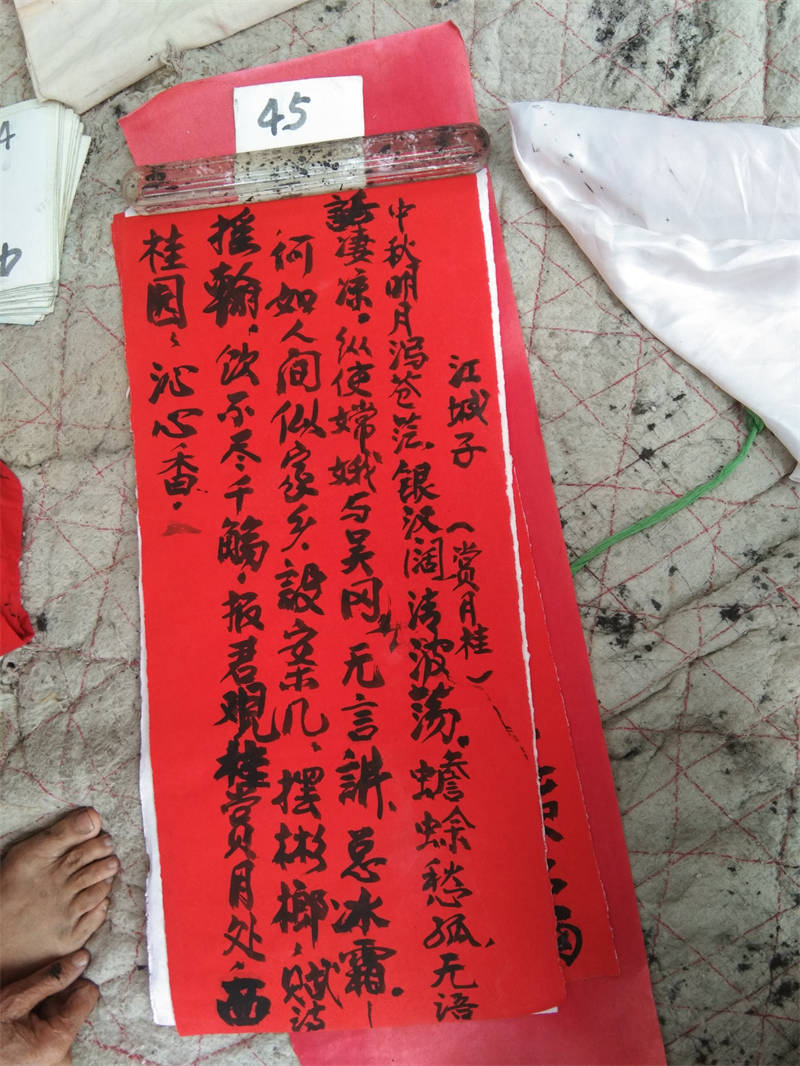 45
江城子 (赏月桂)
中秋明月泻苍茫,银汉阔,清波荡。蟾蜍愁孤,无语
话淒凉。纵使嫦娥与吴冈,无言讲,总冰霜。
何如人间似家乡,設案几,摆彬榔,赋诗
挥翰,饮不尽千觞,报君观桂赏月处,西
桂园,沁心香。